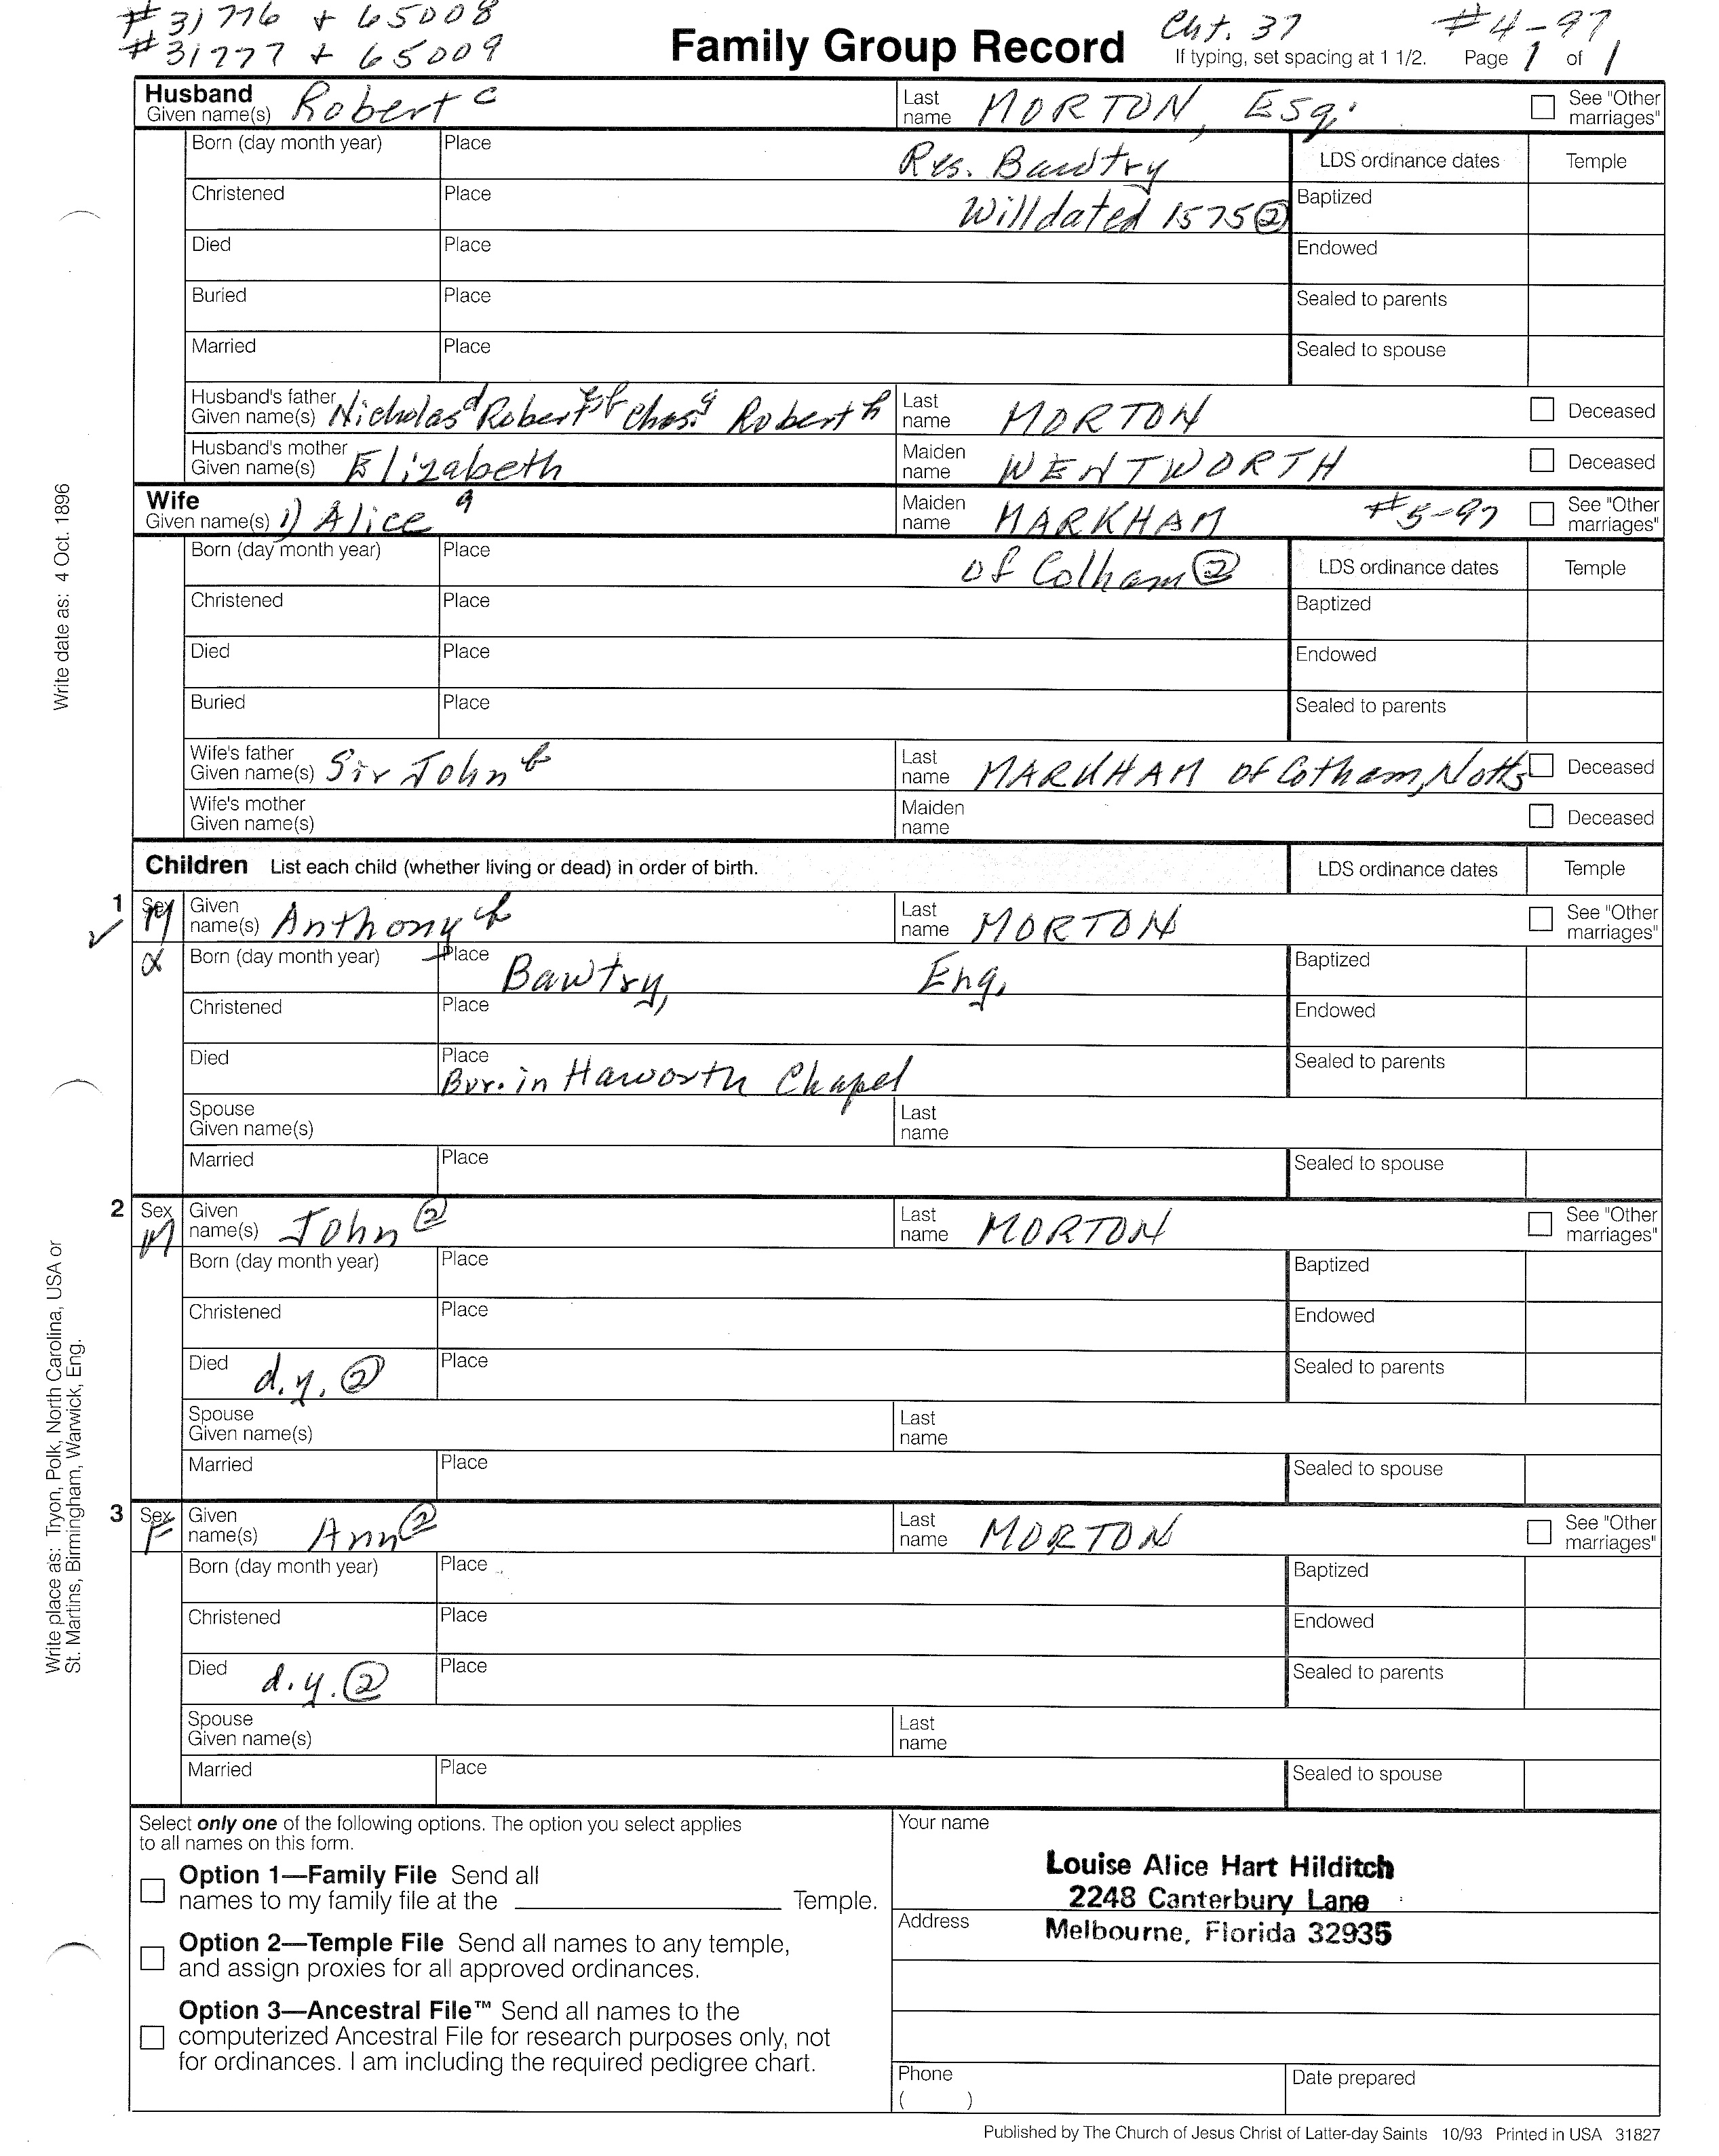 #31776 + 65008
#31777 + 65009
Family Group Record
Cht. 37
#4-97
If typing, set spacing at 1 1/2. Page 1 of 1
Husband
Given name(s) Robert c
Last name MORTON, Esq.
See "Other marriages"
Born (day month year) Place Res. Bawtry
LDS ordinance dates Temple
Christened Place Will dated 1575 ②
Baptized
Died Place
Endowed
Buried Place
Sealed to parents
Married Place
Sealed to spouse
Husband's father
Given name(s) Nicholas d Robert Chas. g Robert h
Last name MORTON
Deceased
Husband's mother
Given name(s) Elizabeth
Maiden name WENTWORTH
Deceased
Wife
Given name(s) 1) Alice g
Maiden name MARKHAM #5-97
See "Other marriages"
Born (day month year) Place of Colham ②
LDS ordinance dates Temple
Christened Place
Baptized
Died Place
Endowed
Buried Place
Sealed to parents
Wife's father
Given name(s) Sir John
Last name MARKHAM of Cotham, Notts
Deceased
Wife's mother
Given name(s)
Maiden name
Deceased
Children List each child (whether living or dead) in order of birth.
LDS ordinance dates Temple
1 Sex M
Given name(s) Anthony
Last name MORTON
See "Other marriages"
Born (day month year) Place Bawtry, Eng.
Baptized
Christened Place
Endowed
Died Place Bur. in Haworth Chapel
Sealed to parents
Spouse
Given name(s)
Last name
Married Place
Sealed to spouse
2 Sex M
Given name(s) John ②
Last name MORTON
See "Other marriages"
Born (day month year) Place
Baptized
Christened Place
Endowed
Died d.y. ② Place
Sealed to parents
Spouse
Given name(s)
Last name
Married Place
Sealed to spouse
3 Sex F
Given name(s) Ann ②
Last name MORTON
See "Other marriages"
Born (day month year) Place
Baptized
Christened Place
Endowed
Died d.y. ② Place
Sealed to parents
Spouse
Given name(s)
Last name
Married Place
Sealed to spouse
Write date as: 4 Oct. 1896
Write place as: Tryon, Polk, North Carolina, USA or
St. Martins, Birmingham, Warwick, Eng.
Select only one of the following options. The option you select applies
to all names on this form.
Option 1—Family File Send all
names to my family file at the Temple.
Option 2—Temple File Send all names to any temple,
and assign proxies for all approved ordinances.
Option 3—Ancestral File™ Send all names to the
computerized Ancestral File for research purposes only, not
for ordinances. I am including the required pedigree chart.
Your name
Louise Alice Hart Hilditch
2248 Canterbury Lane
Address
Melbourne, Florida 32935
Phone
( )
Date prepared
Published by The Church of Jesus Christ of Latter-day Saints 10/93 Printed in USA 31827